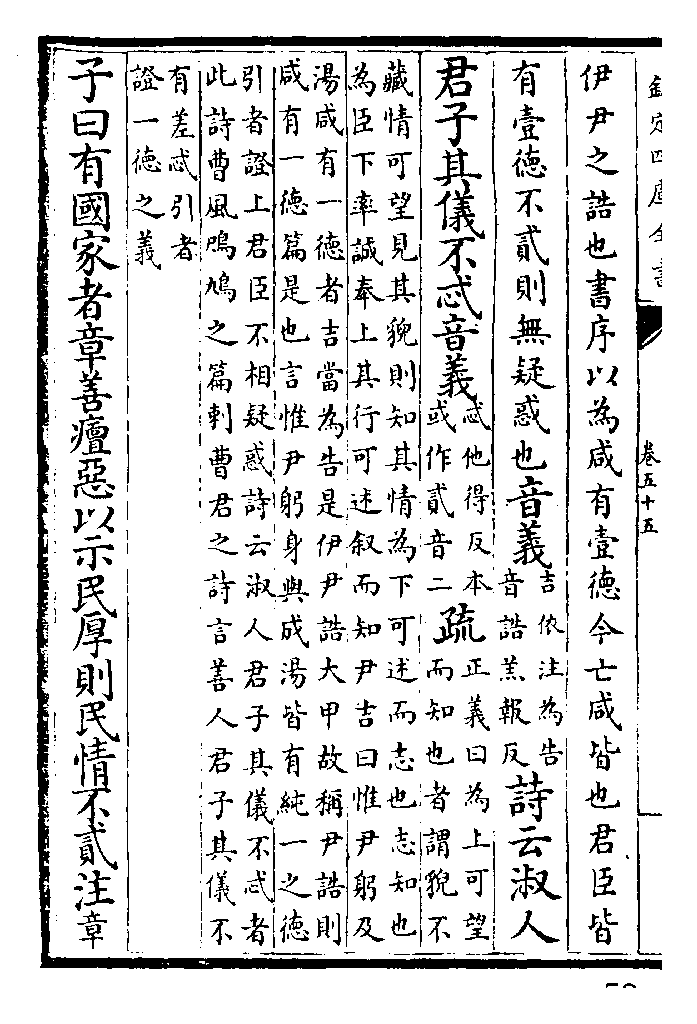 欽定四庫全書
卷五十五
伊尹之誥也書序以為咸有壹德今亡咸皆也君臣皆
有壹德不貳則無疑惑也音義吉依注為告
音誥羔報反詩云淑人
君子其儀不忒音義忒他得反本
或作貳音二疏正義曰為上可望
而知也者謂貌不
藏情可望見其貌則知其情為下可述而志也志知也
為臣下率誠奉上其行可述叙而知尹吉曰惟尹躬及
湯咸有一德者吉當為告是伊尹誥大甲故稱尹誥則
咸有一德篇是也言惟尹躬身與成湯皆有純一之德
引者證上君臣不相疑惑詩云淑人君子其儀不忒者
此詩曹風鳲鳩之篇刺曹君之詩言善人君子其儀不
有差忒引者
證一德之義
子曰有國家者章善癉惡以示民厚則民情不貳注章